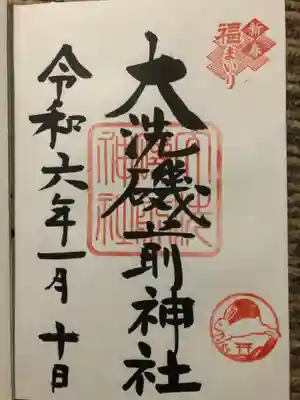 新春
福まいり
大洗磯前神社
令和六年一月十日